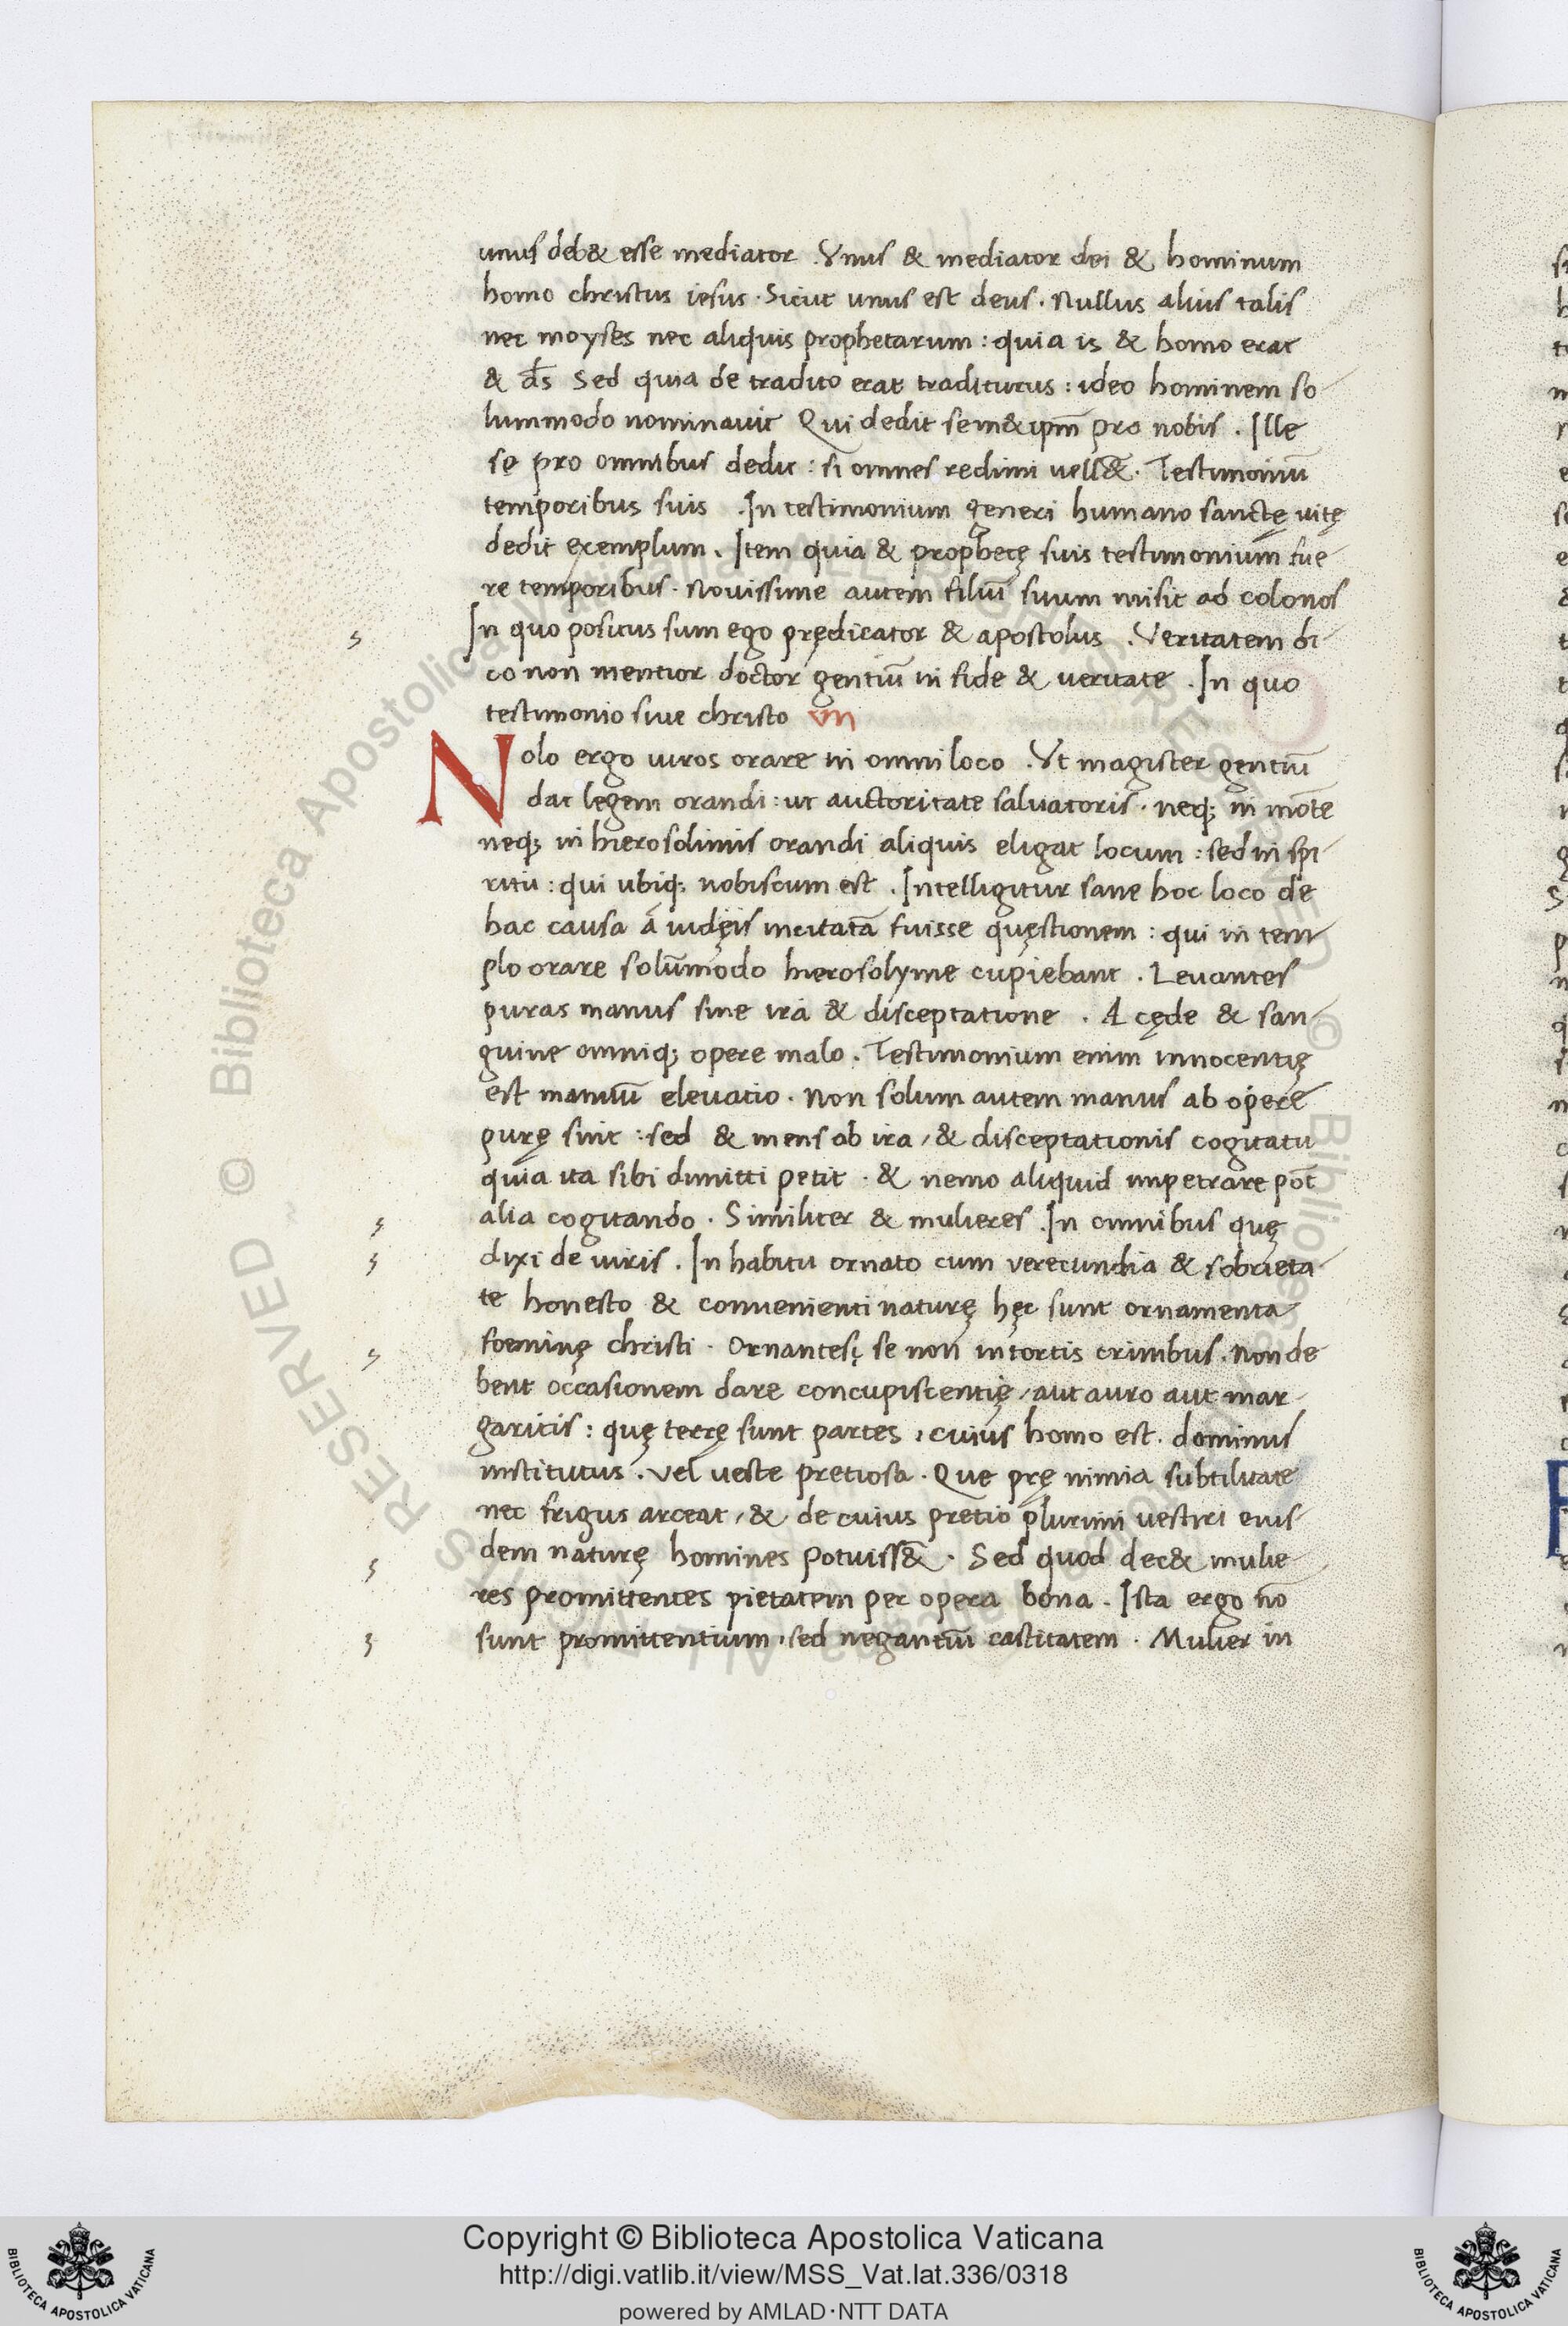 unus deb& esse mediator . Vnus & mediator dei & hominum
homo christus iesus . Sicut unus est deus . Nullus alius talis
nec moyses nec aliquis prophetarum : quia is & homo erat
& d̄s Sed quia de tradito erat traditurus : ideo hominem so
lummodo nominauit Qui dedit sem&ipm̄ pro nobis . Ille
sę pro omnibus dedit : si omnes redimi uell&̄ . Testimoniū
temporibus suis . In testimonium generi humano sanctę uitę
dedit exemplum . Item quia & prophetę suis testimonium fue
re temporibus . Nouissime autem filiū suum misit ad colonos
In quo positus sum ego prędicator & apostolus . Veritatem di
co non mentior doctor gentiū in fide & veritate . In quo
testimonio siue christo VII
Nolo ergo uiros orare in omni loco . Vt magister gentiū
dat legem orandi : ut auctoritate saluatoris . neq; in mōte
neq; in hierosolimis orandi aliquis eligat locum : sed in spi
ritu : qui ubiq; nobiscum est . Intelligitur sane hoc loco de
hac causa a iudęis incitatā fuisse quęstionem : qui in tem
plo orare solūmodo hierosolyme cupiebant . Leuantes
puras manus sine ira & disceptatione . A cęde & san
guine omniq; opere malo . Testimonium enim innocentię
est manuū eleuatio . Non solum autem manus ab opere
purę sint : sed & mens ab ira / & disceptationis cogitatu
quia ita sibi dimitti petit . & nemo aliquid impetrare pōt
alia cogitando . Similiter & mulieres . In omnibus quę
dixi de uiris . In habitu ornato cum verecundia & sobrieta
te honesto & conuenienti naturę hęc sunt ornamenta
foeminę christi . Ornantes; se non in tortis crinibus . Non de
bent occasionem dare concupiscentię / aut auro aut mar
garitis : quę terrę sunt partes , cuius homo est . dominus
institutus . Vel ueste pretiosa . Que prę nimia subtilitate
nec frigus arceat / & de cuius pretio plurimi uestiri eius
dem naturę homines potuiss&̄ . Sed quod dec& mulie
res promittentes pietatem per opera bona . Ista ergo nō
sunt promittentium , sed negantiū castitatem . Mulier in
Copyright © Biblioteca Apostolica Vaticana
http://digi.vatlib.it/view/MSS_Vat.lat.336/0318
powered by AMLAD·NTT DATA